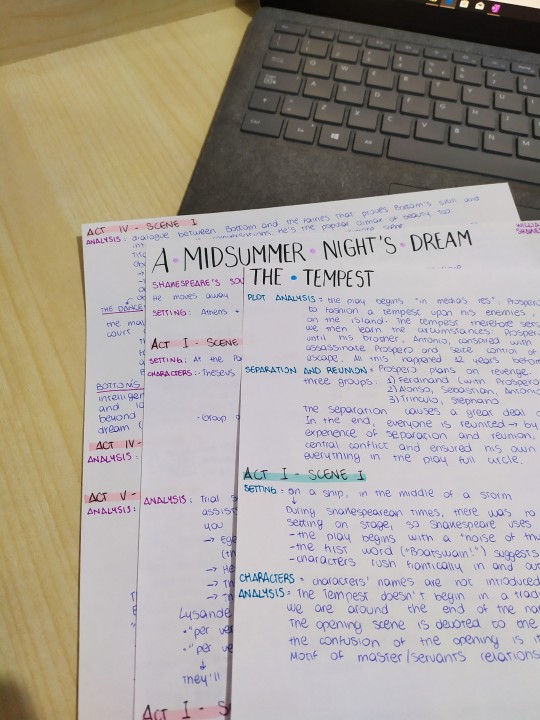 ACT IV - SCENE I
ANALYSIS: dialogue between Bottom and the fairies that proves Bottom's
He's the popular climax of beauty too
THE DANCE
BOTTOM'S
intelligen
and
beyond
dream (
ACT IV -
ANALYSIS:
ACT V -
ANALYSIS:
A • MIDSUMMER • NIGHT'S • DREAM
SHAKESPEARE'S SOU
He moves away
SETTING: Athens +
ACT I - SCENE
SETTING: At the Pa
CHARACTERS: - Theseus
- Group o
ANALYSIS: Trial s
assist
you
→ Ege
(th
→ He
→ Th
→ Th
Lysande
• "per ve
• "per v
↓
They'll
ACT I - S
THE • TEMPEST
PLOT ANALYSIS = the play begins "in medias res": Prospero
to fashion a tempest upon his enemies,
on the island. The tempest therefore sets
we then learn the circumstances: Prospero
until his brother, Antonio, conspired with
assassinate Prospero and seize control of
escape. All this happened 12 years before
SEPARATION AND REUNION = Prospero plans on revenge.
three groups: 1) Ferdinand (with Prospero
2) Alonso, Sebastian, Antonio
3) Trinculo, Stephano
The separation causes a great deal o
In the end, everyone is reunited → by
experience of separation and reunion,
central conflict and ensured his own
everything in the play full circle.
ACT I - SCENE I
SETTING = on a ship, in the middle of a storm
↓
During shakespearean times, there was no
setting on stage, so Shakespeare uses
- the play begins with a "noise of thu
- the first word ("Boatswain!") suggests
- characters rush frantically in and out
CHARACTERS = characters' names are not introduced
ANALYSIS = The Tempest doesn't begin in a trad
we are around the end of the nar
The opening scene is devoted to one
the confusion of the opening is it
Motif of master/servants relations